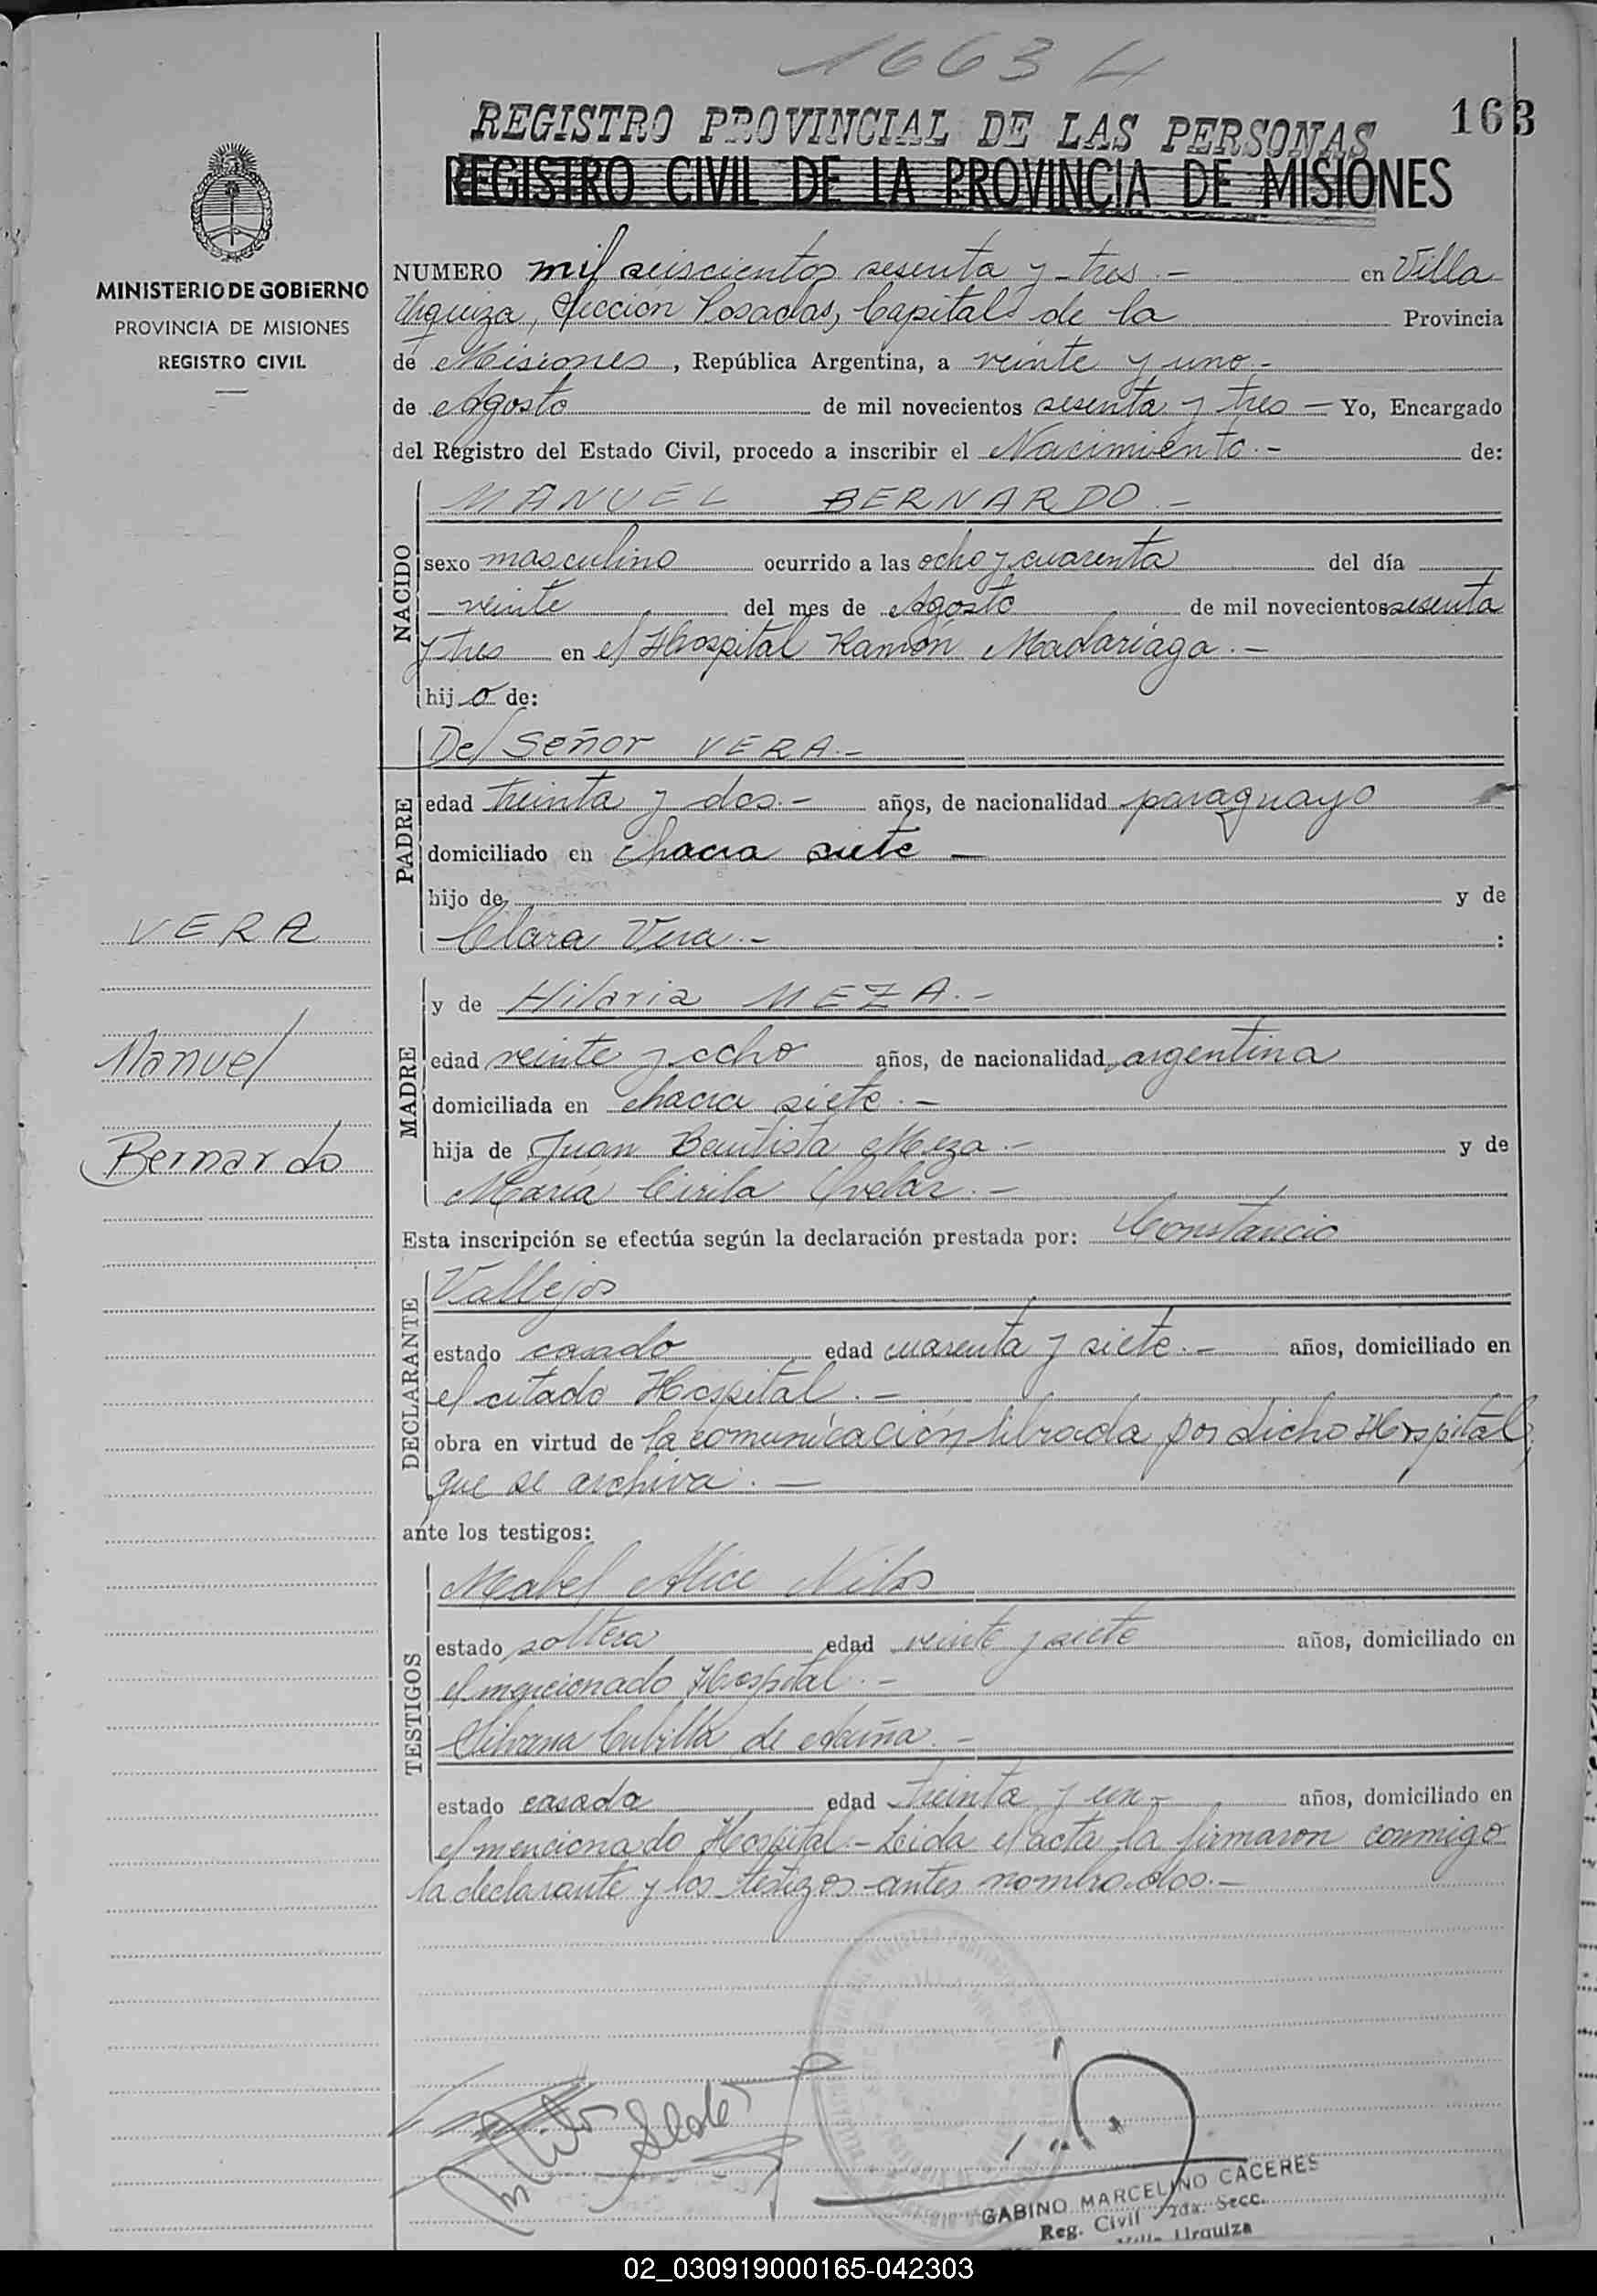 1663
REGISTRO PROVINCIAL DE LAS PERSONAS
163
REGISTRO CIVIL DE LA PROVINCIA DE MISIONES
MINISTERIO DE GOBIERNO
PROVINCIA DE MISIONES
REGISTRO CIVIL
NUMERO mil seiscientos sesenta y tres.- en Villa
Urquiza, Sección Posadas, Capital de la Provincia
de Misiones, República Argentina, a veinte y uno.-
de Agosto de mil novecientos sesenta y tres — Yo, Encargado
del Registro del Estado Civil, procedo a inscribir el Nacimiento.- de:
NACIDO
MANUEL BERNARDO.-
sexo masculino ocurrido a las ocho y cuarenta del día
veinte del mes de Agosto de mil novecientos sesenta
y tres en el Hospital Ramón Madariaga.-
hijo de:
PADRE
Del Señor VERA.-
edad treinta y dos.- años, de nacionalidad paraguayo
domiciliado en chacra siete —
hijo de y de
Clara Vera.- :
VERA
Manuel
Bernardo
MADRE
y de Hilaria MEZA.-
edad veinte y ocho años, de nacionalidad argentina
domiciliada en chacra siete.-
hija de Juan Bautista Meza.- y de
María Cirila Ovelar.-
Esta inscripción se efectúa según la declaración prestada por: Constancio
DECLARANTE
Vallejos
estado casado edad cuarenta y siete.- años, domiciliado en
el citado Hospital.-
obra en virtud de la comunicación librada por dicho Hospital,
que se archiva.—
ante los testigos:
TESTIGOS
Mabel Alice
estado soltera edad veinte y siete años, domiciliado en
el mencionado Hospital.-
Silvana Cubilla de Acuña.-
estado casada edad treinta y un.- años, domiciliado en
el mencionado Hospital.- Leida el acta la firmaron conmigo
la declarante y los testigos antes nombrados.-
GABINO MARCELINO CACERES
Reg. Civil 2da. Secc.
Villa Urquiza
02_030919000165-042303